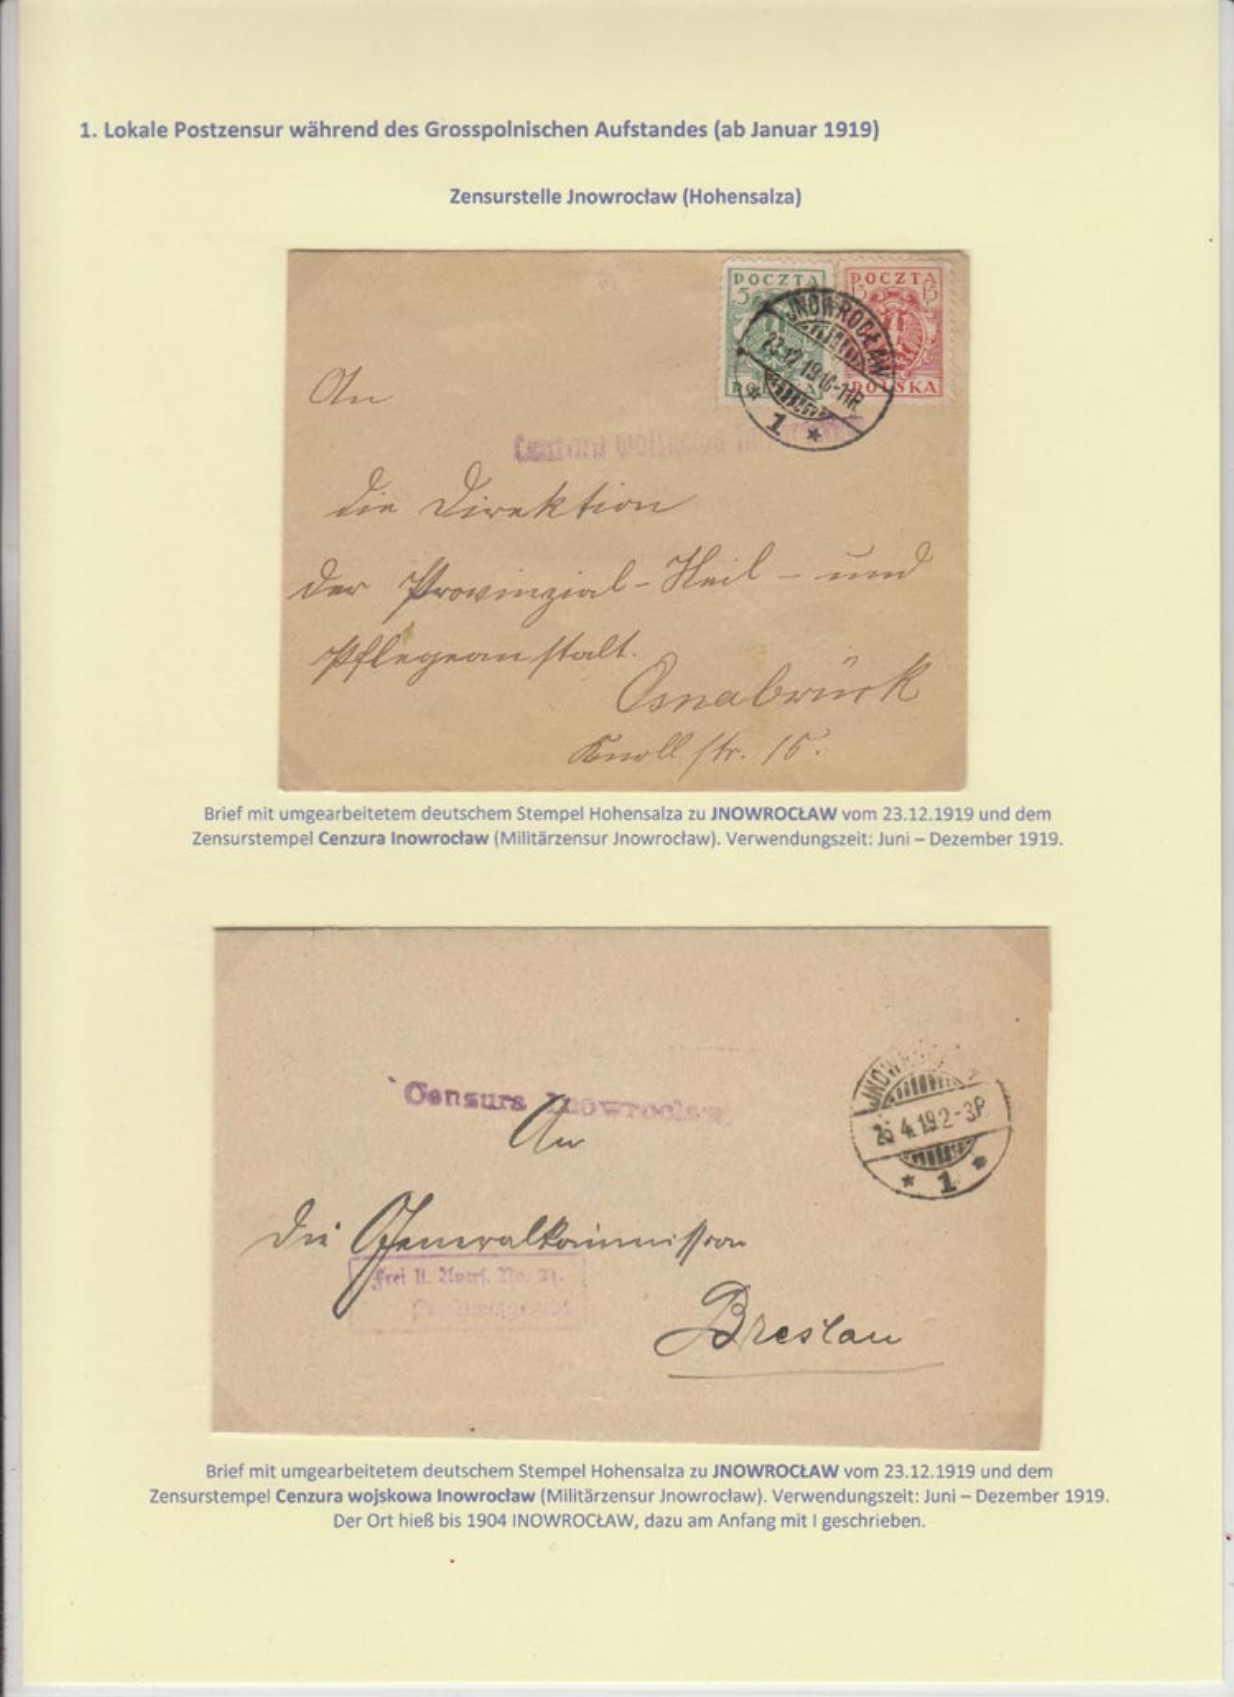 1. Lokale Postzensur während des Grosspolnischen Aufstandes (ab Januar 1919)
Zensurstelle Jnowrocław (Hohensalza)
POCZTA POCZTA
5 15 15
JNOWROCŁAW
23.12.19 10-11P.
POLSKA
1
An
Cenzura wojskowa
die Direktion
der Provinzial-Heil- und
Pflegeanstalt.
Osnabrück
Knollstr. 15.
Brief mit umgearbeitetem deutschem Stempel Hohensalza zu JNOWROCŁAW vom 23.12.1919 und dem
Zensurstempel Cenzura Inowrocław (Militärzensur Jnowrocław). Verwendungszeit: Juni – Dezember 1919.
Censura Inowroclaw
An
25.4.19.2-3P.
1
die Generalkommission
Frei lt. Avers. No. 21.
Breslau
Brief mit umgearbeitetem deutschem Stempel Hohensalza zu JNOWROCŁAW vom 23.12.1919 und dem
Zensurstempel Cenzura wojskowa Inowrocław (Militärzensur Jnowrocław). Verwendungszeit: Juni – Dezember 1919.
Der Ort hieß bis 1904 INOWROCŁAW, dazu am Anfang mit I geschrieben.